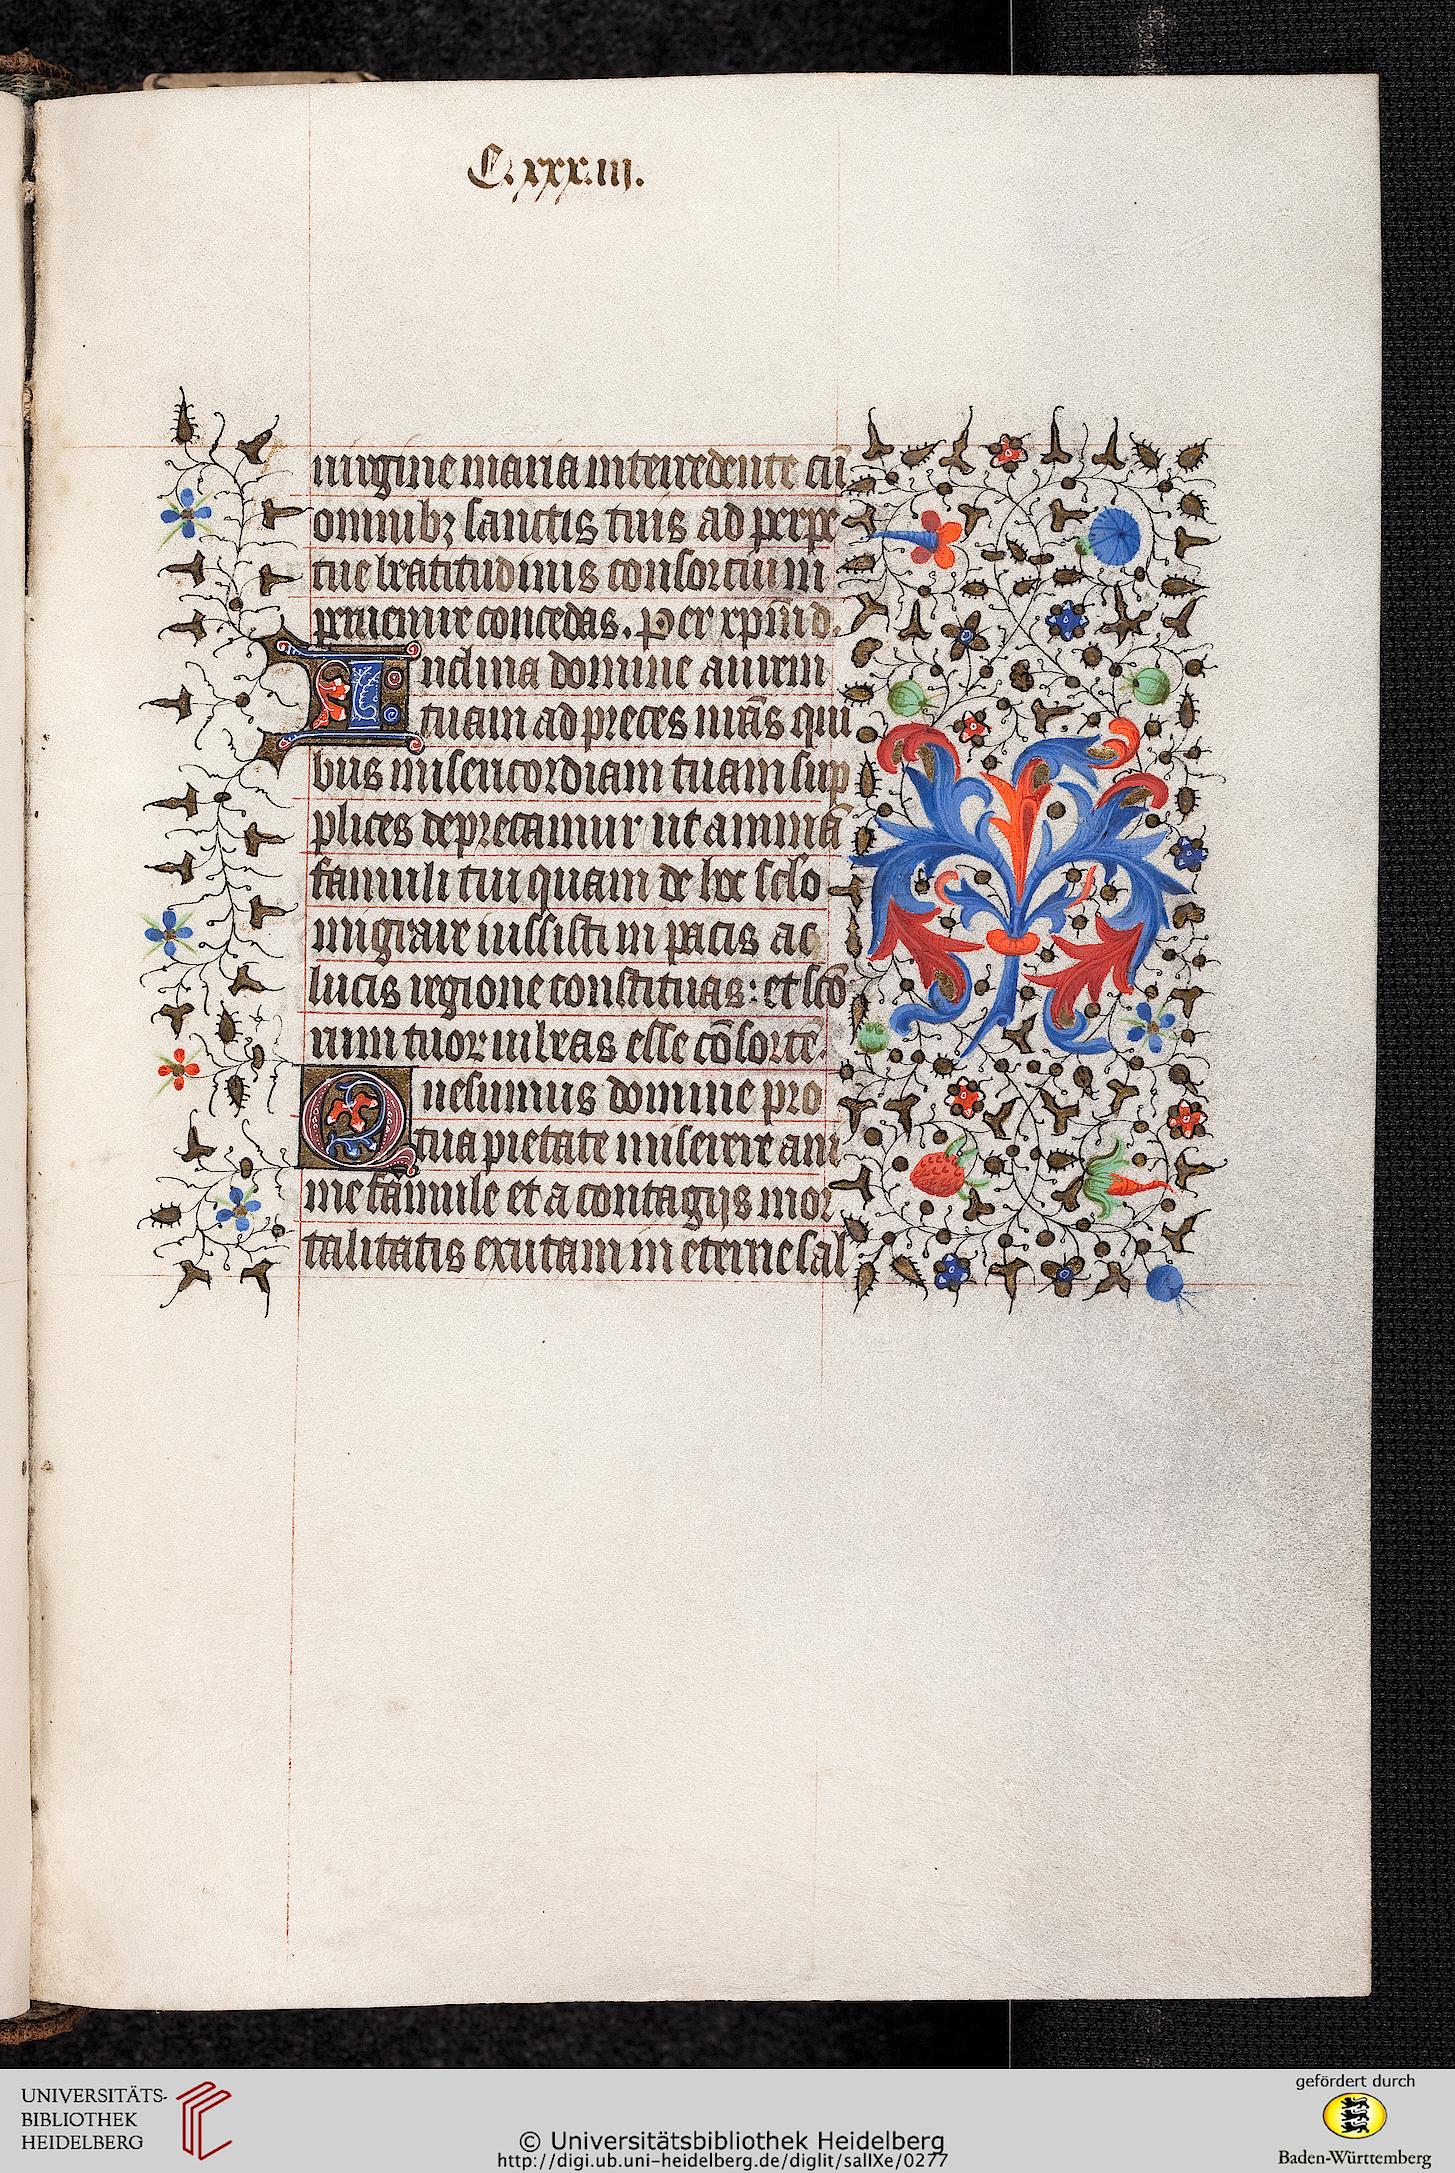 C.xxx.iij.
uirgine maria intercedente cū
omnibꝫ sanctis tuis ad perpe
tue beatitudinis consorcium
peruenire concedas. Per xp̄m d.
Inclina domine aurem
tuam ad preces nr̄as qui
bus misericordiam tuam sup
plices deprecamur ut animā
famuli tui quam de hoc sc̄lo
migrare iussisti in pacis ac
lucis regione constituas: et sc̄o
rum tuorum iubeas esse cōsortē.
Quesumus domine pro
tua pietate miserere ani
me famule et a contagijs mor
talitatis exutam in eterne sal
UNIVERSITÄTS-
BIBLIOTHEK
HEIDELBERG
© Universitätsbibliothek Heidelberg
http://digi.ub.uni-heidelberg.de/diglit/salIXe/0277
gefördert durch
Baden-Württemberg